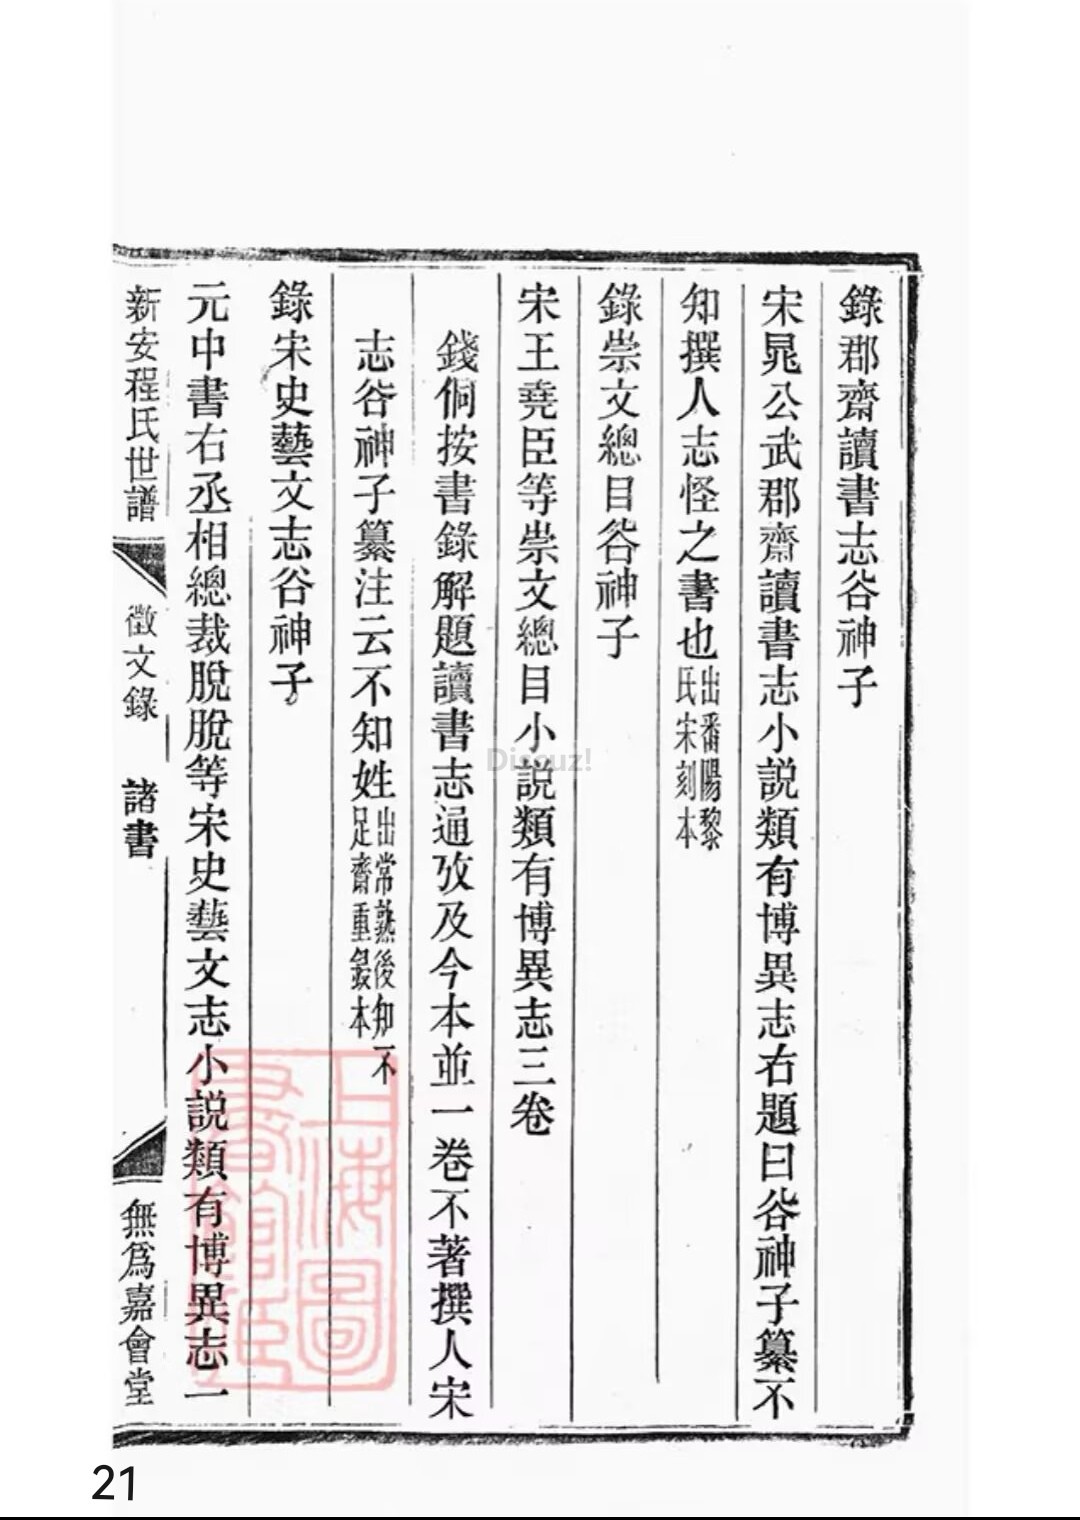 錄郡齋讀書志谷神子
宋晁公武郡齋讀書志小説類有博異志右題曰谷神子纂不
知撰人志怪之書也出番陽黎氏宋刻本
錄崇文總目谷神子
宋王堯臣等崇文總目小説類有博異志三卷
錢侗按書錄解題讀書志通攷及今本並一卷不著撰人宋
志谷神子纂注云不知姓出常熟後知不足齋重鋟本
錄宋史藝文志谷神子
元中書右丞相總裁脫脫等宋史藝文志小説類有博異志一
新安程氏世譜
徵文錄
諸書
無爲嘉會堂
上海圖書館藏
Discuz!
21